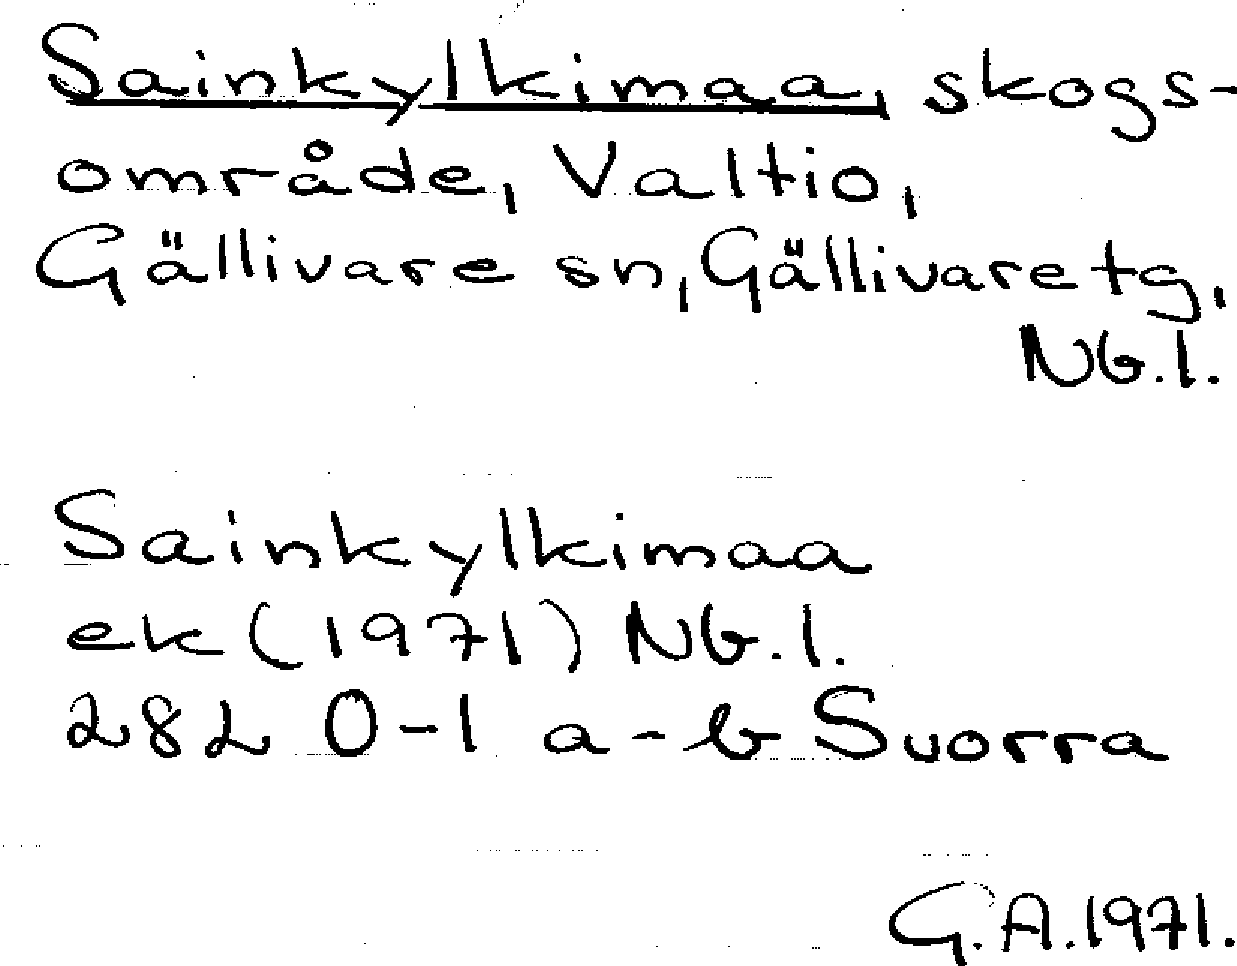 Sainkylkimaa, skogs-
område, Valtio,
Gällivare sn, Gällivare tg,
Nb.l.
Sainkylkimaa
ek (1971) Nb.l.
282 0-1 a-b Suorra
G.A. 1971.